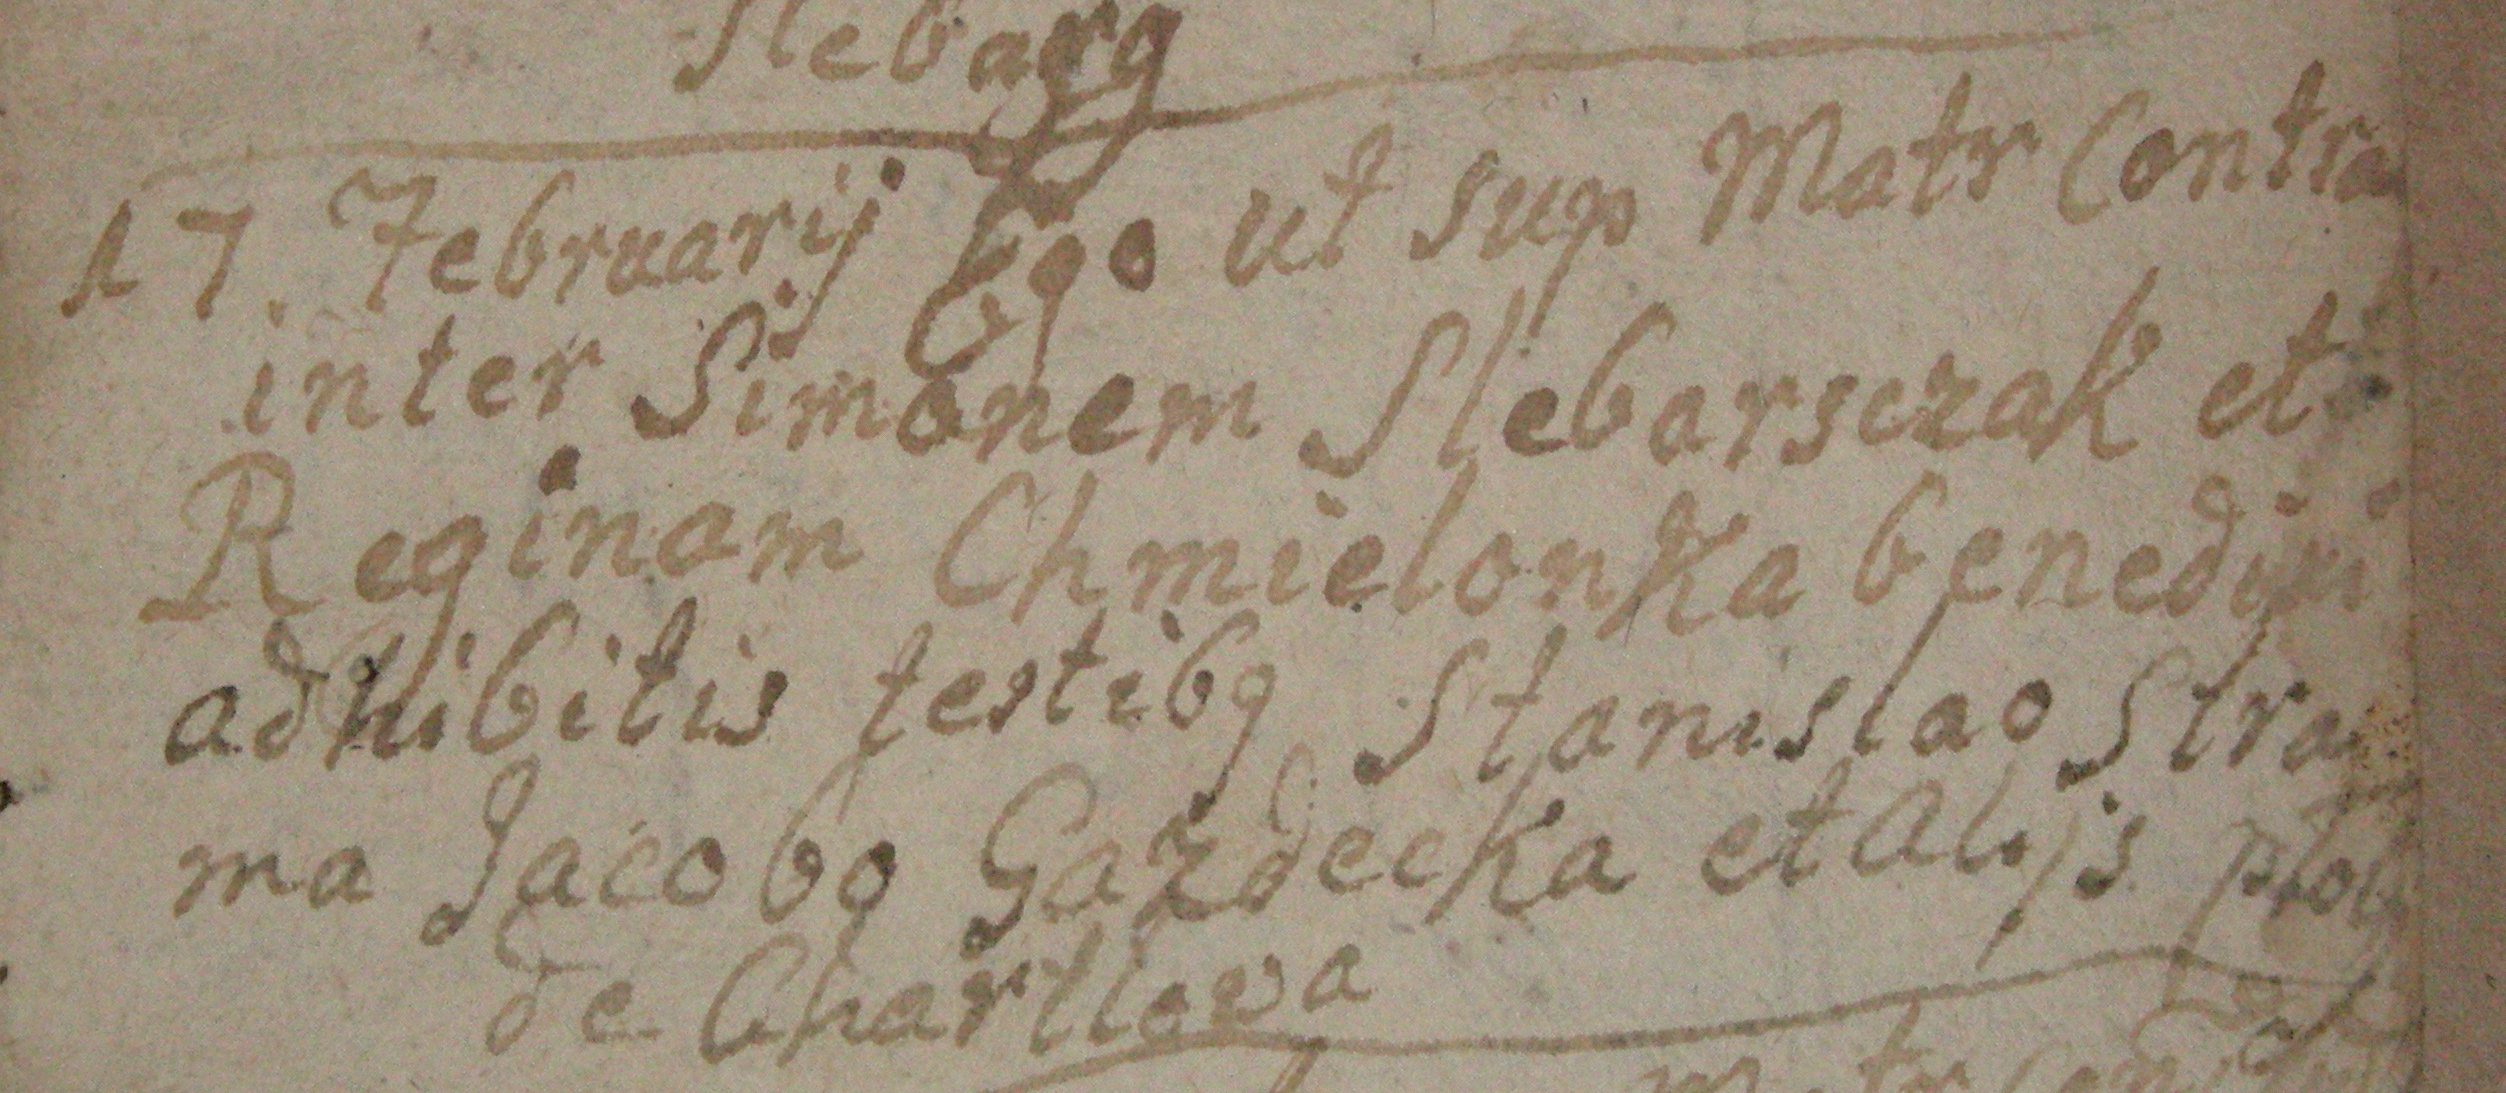 Slebarg
17. Februarij Ego ut sup Matr Contra
inter Simonem Slebarsczak et
Reginam Chmielonka benedixi
adhibitis testibq Stanislao Stra
ma Jacobo Gazdecka et Alijs
de Charllewa
Matr Contr